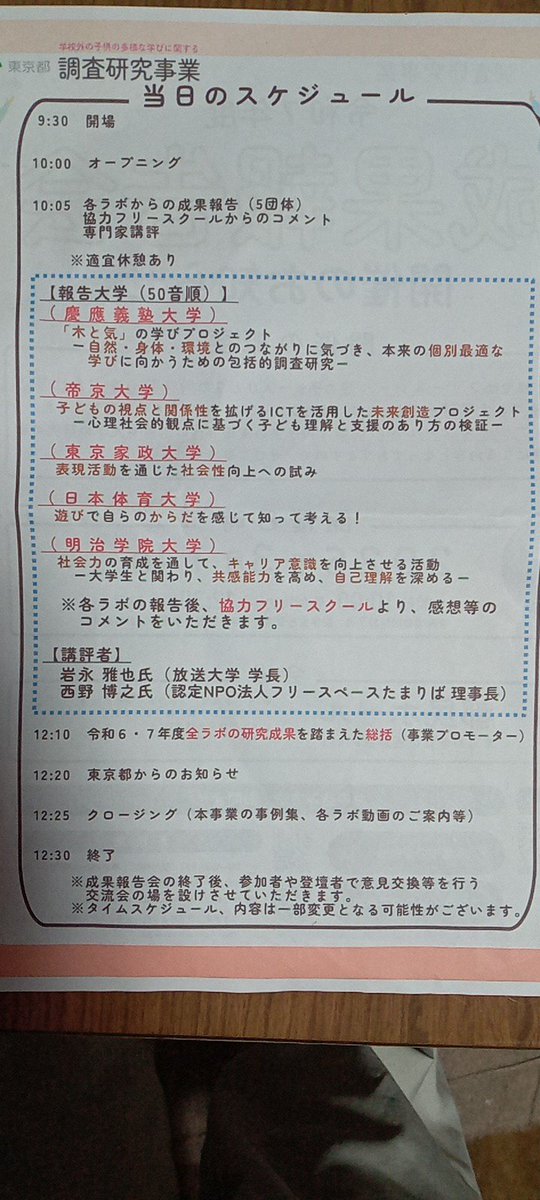 学校外の子供の多様な学びに関する
東京都 調査研究事業
当日のスケジュール
9:30 開場
10:00 オープニング
10:05 各ラボからの成果報告（5団体）
協力フリースクールからのコメント
専門家講評
※適宜休憩あり
【報告大学（50音順）】
（慶應義塾大学）
「木と気」の学びプロジェクト
ー自然・身体・環境とのつながりに気づき、本来の個別最適な
学びに向かうための包括的調査研究ー
（帝京大学）
子どもの視点と関係性を拡げるICTを活用した未来創造プロジェクト
ー心理社会的観点に基づく子ども理解と支援のあり方の検証ー
（東京家政大学）
表現活動を通じた社会性向上への試み
（日本体育大学）
遊びで自らのからだを感じて知って考える！
（明治学院大学）
社会力の育成を通して、キャリア意識を向上させる活動
ー大学生と関わり、共感能力を高め、自己理解を深めるー
※各ラボの報告後、協力フリースクールより、感想等の
コメントをいただきます。
【講評者】
岩永 雅也氏（放送大学 学長）
西野 博之氏（認定NPO法人フリースペースたまりば 理事長）
12:10 令和6・7年度全ラボの研究成果を踏まえた総括（事業プロモーター）
12:20 東京都からのお知らせ
12:25 クロージング（本事業の事例集、各ラボ動画のご案内等）
12:30 終了
※成果報告会の終了後、参加者や登壇者で意見交換等を行う
交流会の場を設けさせていただきます。
※タイムスケジュール、内容は一部変更となる可能性がございます。